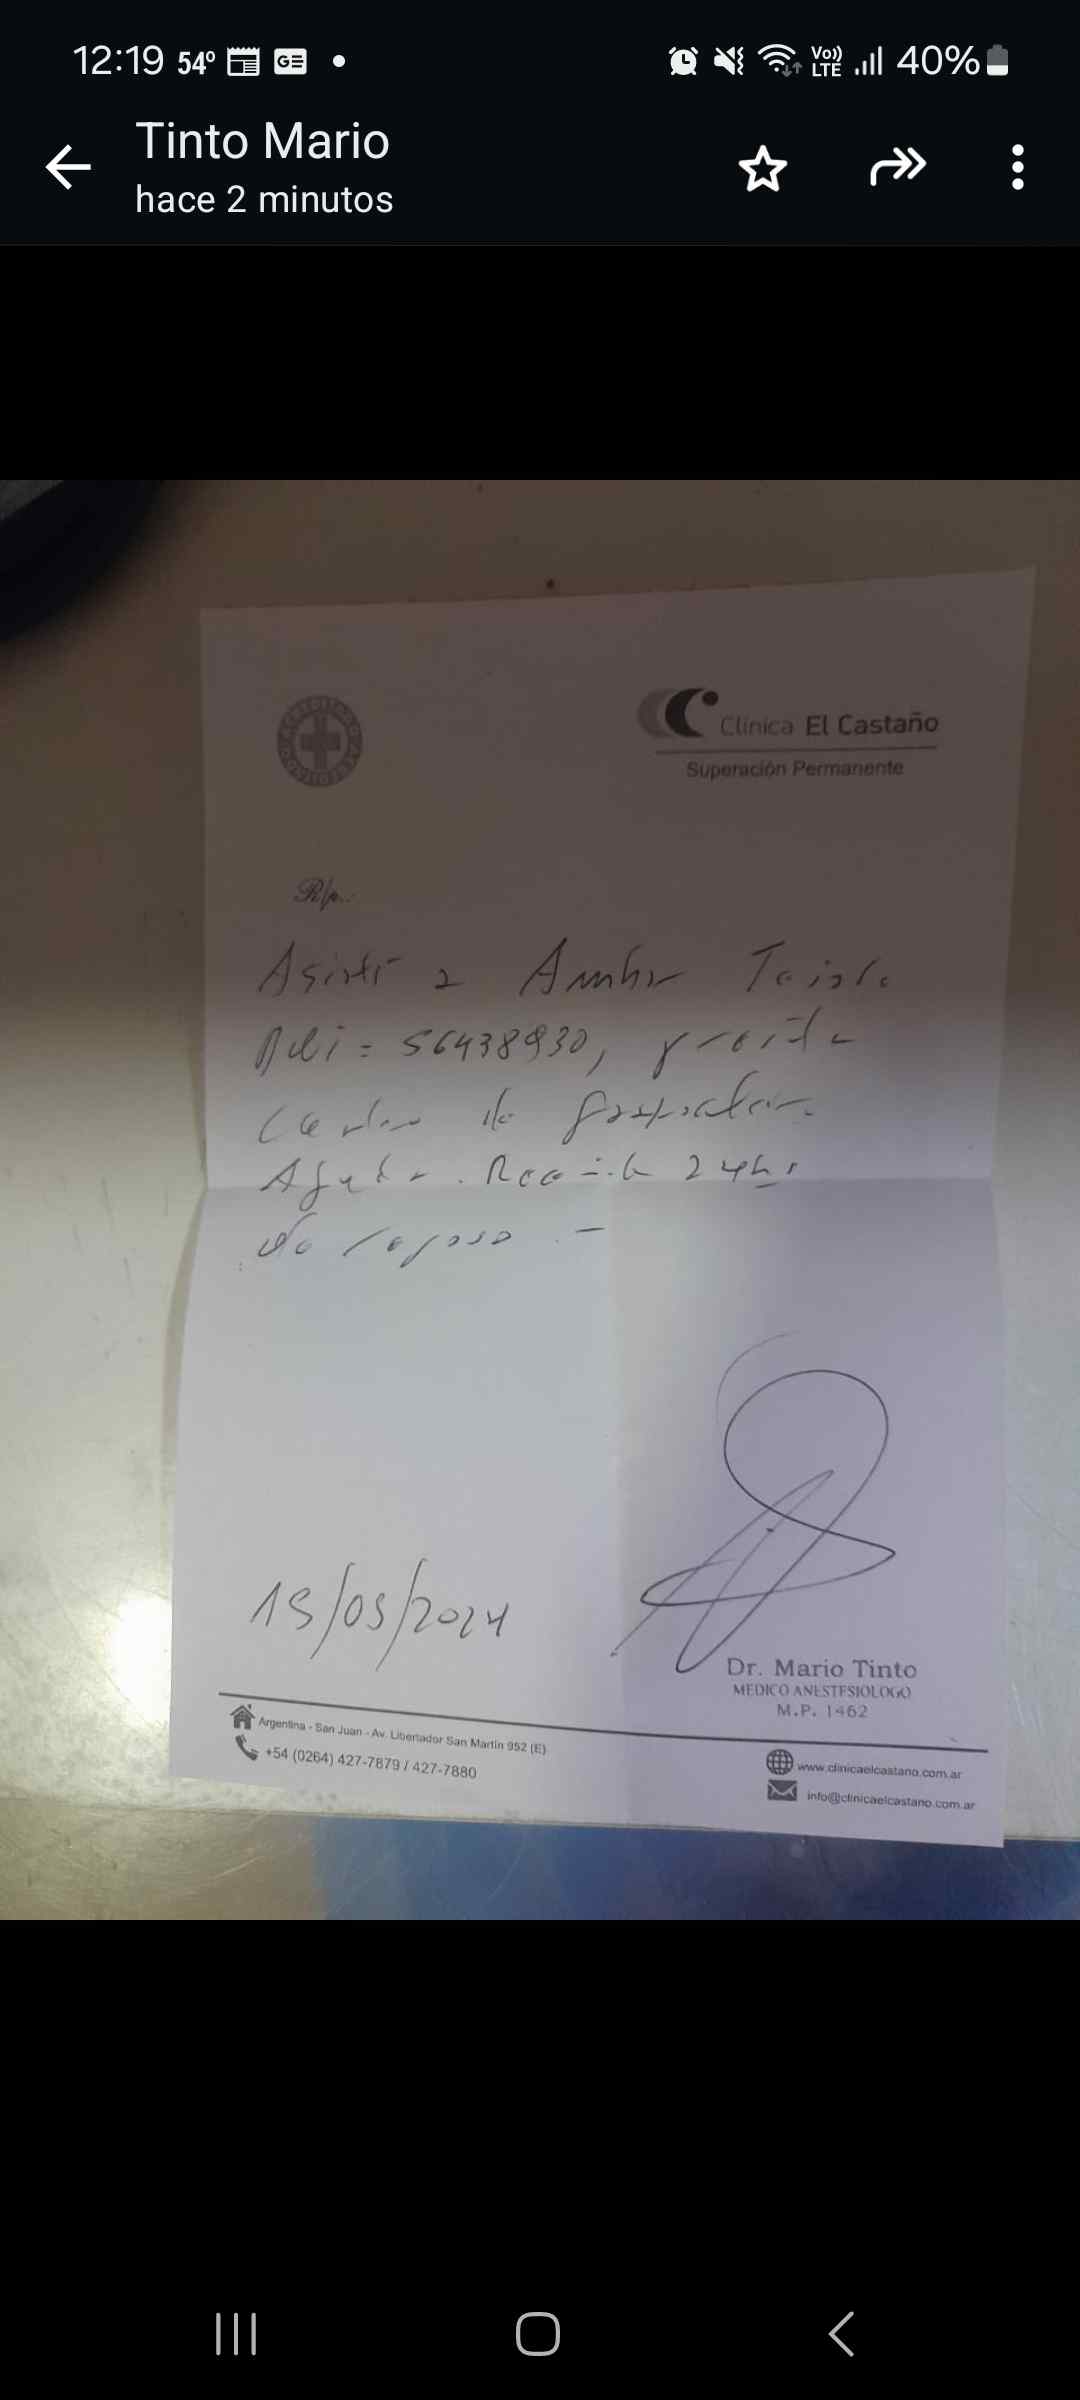 12:19 54° GE
Vo)) LTE 40%
Tinto Mario
hace 2 minutos
Clínica El Castaño
Superación Permanente
R/p..
Asistí a Ambar
DNI = 56438930, presenta
cuadro de
Aguda. 24hs
de reposo.-
15/05/2024
Dr. Mario Tinto
MEDICO ANESTESIOLOGO
M.P. 1462
Argentina - San Juan - Av. Libertador San Martín 952 (E)
+54 (0264) 427-7879 / 427-7880
www.clinicaelcastano.com.ar
info@clinicaelcastano.com.ar